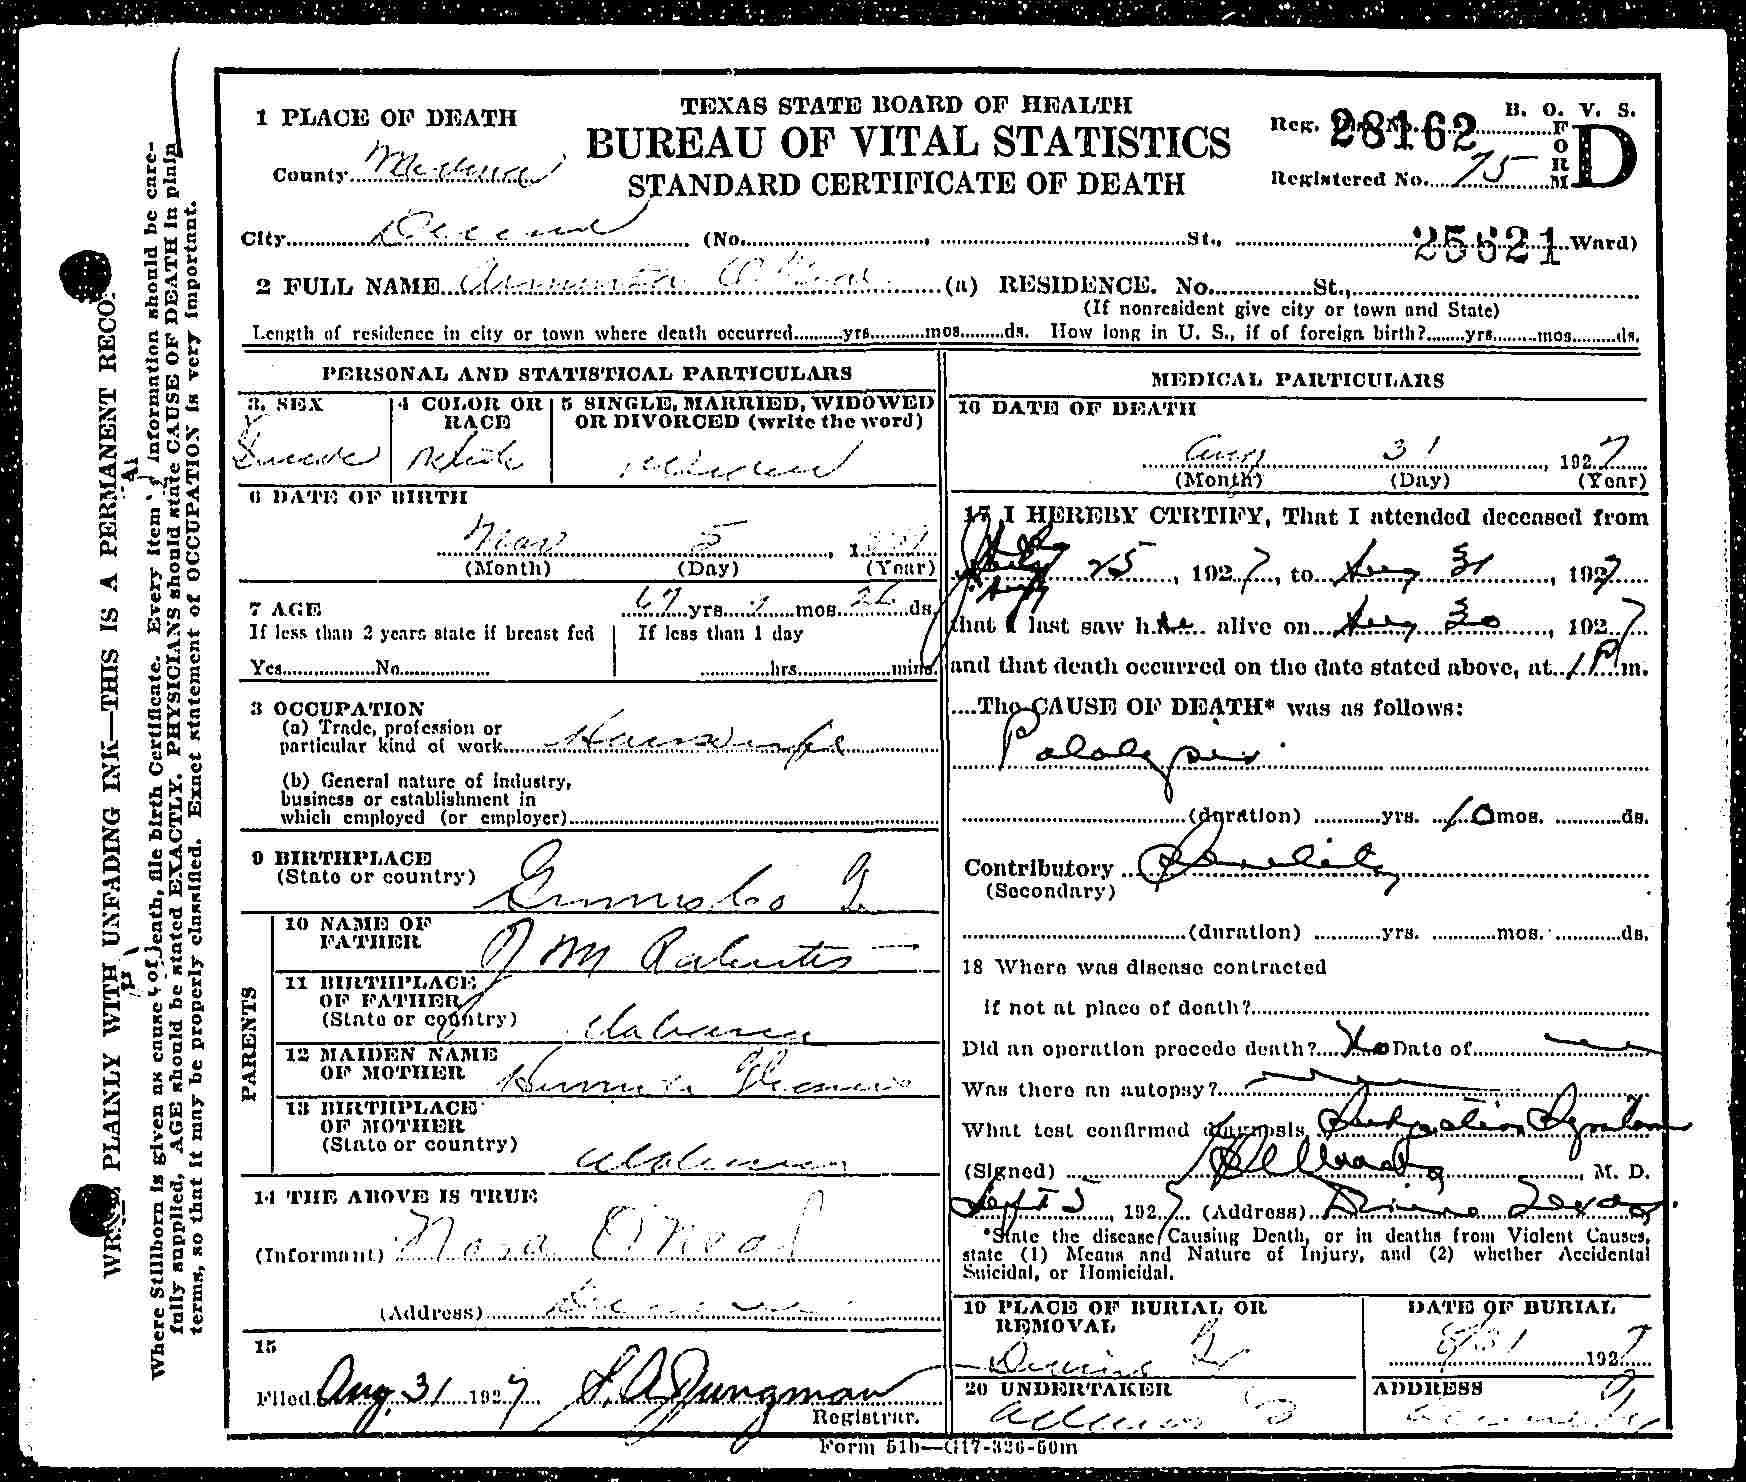 TEXAS STATE BOARD OF HEALTH
BUREAU OF VITAL STATISTICS
STANDARD CERTIFICATE OF DEATH
B. O. V. S.
FORM D
Reg. 28162
Registered No. 75
1 PLACE OF DEATH
County Medina
City Devine (No. St., 25621 Ward)
2 FULL NAME (a) RESIDENCE. No. St.,
(If nonresident give city or town and State)
Length of residence in city or town where death occurred yrs. mos. ds. How long in U. S., if of foreign birth? yrs. mos. ds.
PERSONAL AND STATISTICAL PARTICULARS
3. SEX
4 COLOR OR RACE
White
5 SINGLE, MARRIED, WIDOWED OR DIVORCED (write the word)
6 DATE OF BIRTH
5, 1
(Month) (Day) (Year)
7 AGE
67 yrs. mos. 26 ds.
If less than 2 years state if breast fed
Yes No
If less than 1 day
hrs. mins.
8 OCCUPATION
(a) Trade, profession or
particular kind of work Housewife
(b) General nature of industry,
business or establishment in
which employed (or employer)
9 BIRTHPLACE
(State or country)
PARENTS
10 NAME OF FATHER
J M
11 BIRTHPLACE OF FATHER
(State or country) Alabama
12 MAIDEN NAME OF MOTHER
13 BIRTHPLACE OF MOTHER
(State or country) Alabama
14 THE ABOVE IS TRUE
(Informant) Nora O'Neal
(Address) Devine
15
Filed Aug. 31 1927 S. A. Jungman
Registrar.
MEDICAL PARTICULARS
16 DATE OF DEATH
Aug 31, 1927
(Month) (Day) (Year)
17 I HEREBY CTRTIFY, That I attended deceased from
25, 1927, to Aug 31, 1927
that I last saw her alive on Aug 30, 1927
and that death occurred on the date stated above, at 1 P m.
The CAUSE OF DEATH* was as follows:
Palalysis
(duration) yrs. 10 mos. ds.
Contributory Senility
(Secondary)
(duration) yrs. mos. ds.
18 Where was disease contracted
if not at place of death?
Did an operation precede death? No Date of
Was there an autopsy?
What test confirmed diagnosis
(Signed) , M. D.
Sept 5, 1927 (Address) Devine Texas.
*State the disease Causing Death, or in deaths from Violent Causes,
state (1) Means and Nature of Injury, and (2) whether Accidental
Suicidal, or Homicidal.
19 PLACE OF BURIAL OR REMOVAL
Devine
DATE OF BURIAL
8/31 1927
20 UNDERTAKER
ADDRESS
Form 51b—G17-326-50m
PLAINLY WITH UNFADING INK—THIS IS A PERMANENT RECO
Where Stillborn is given as cause of Death, file birth Certificate. Every item information should be care-
fully supplied, AGE should be stated EXACTLY. PHYSICIANS should state CAUSE OF DEATH in plain
terms, so that it may be properly classified. Exact statement of OCCUPATION is very important.